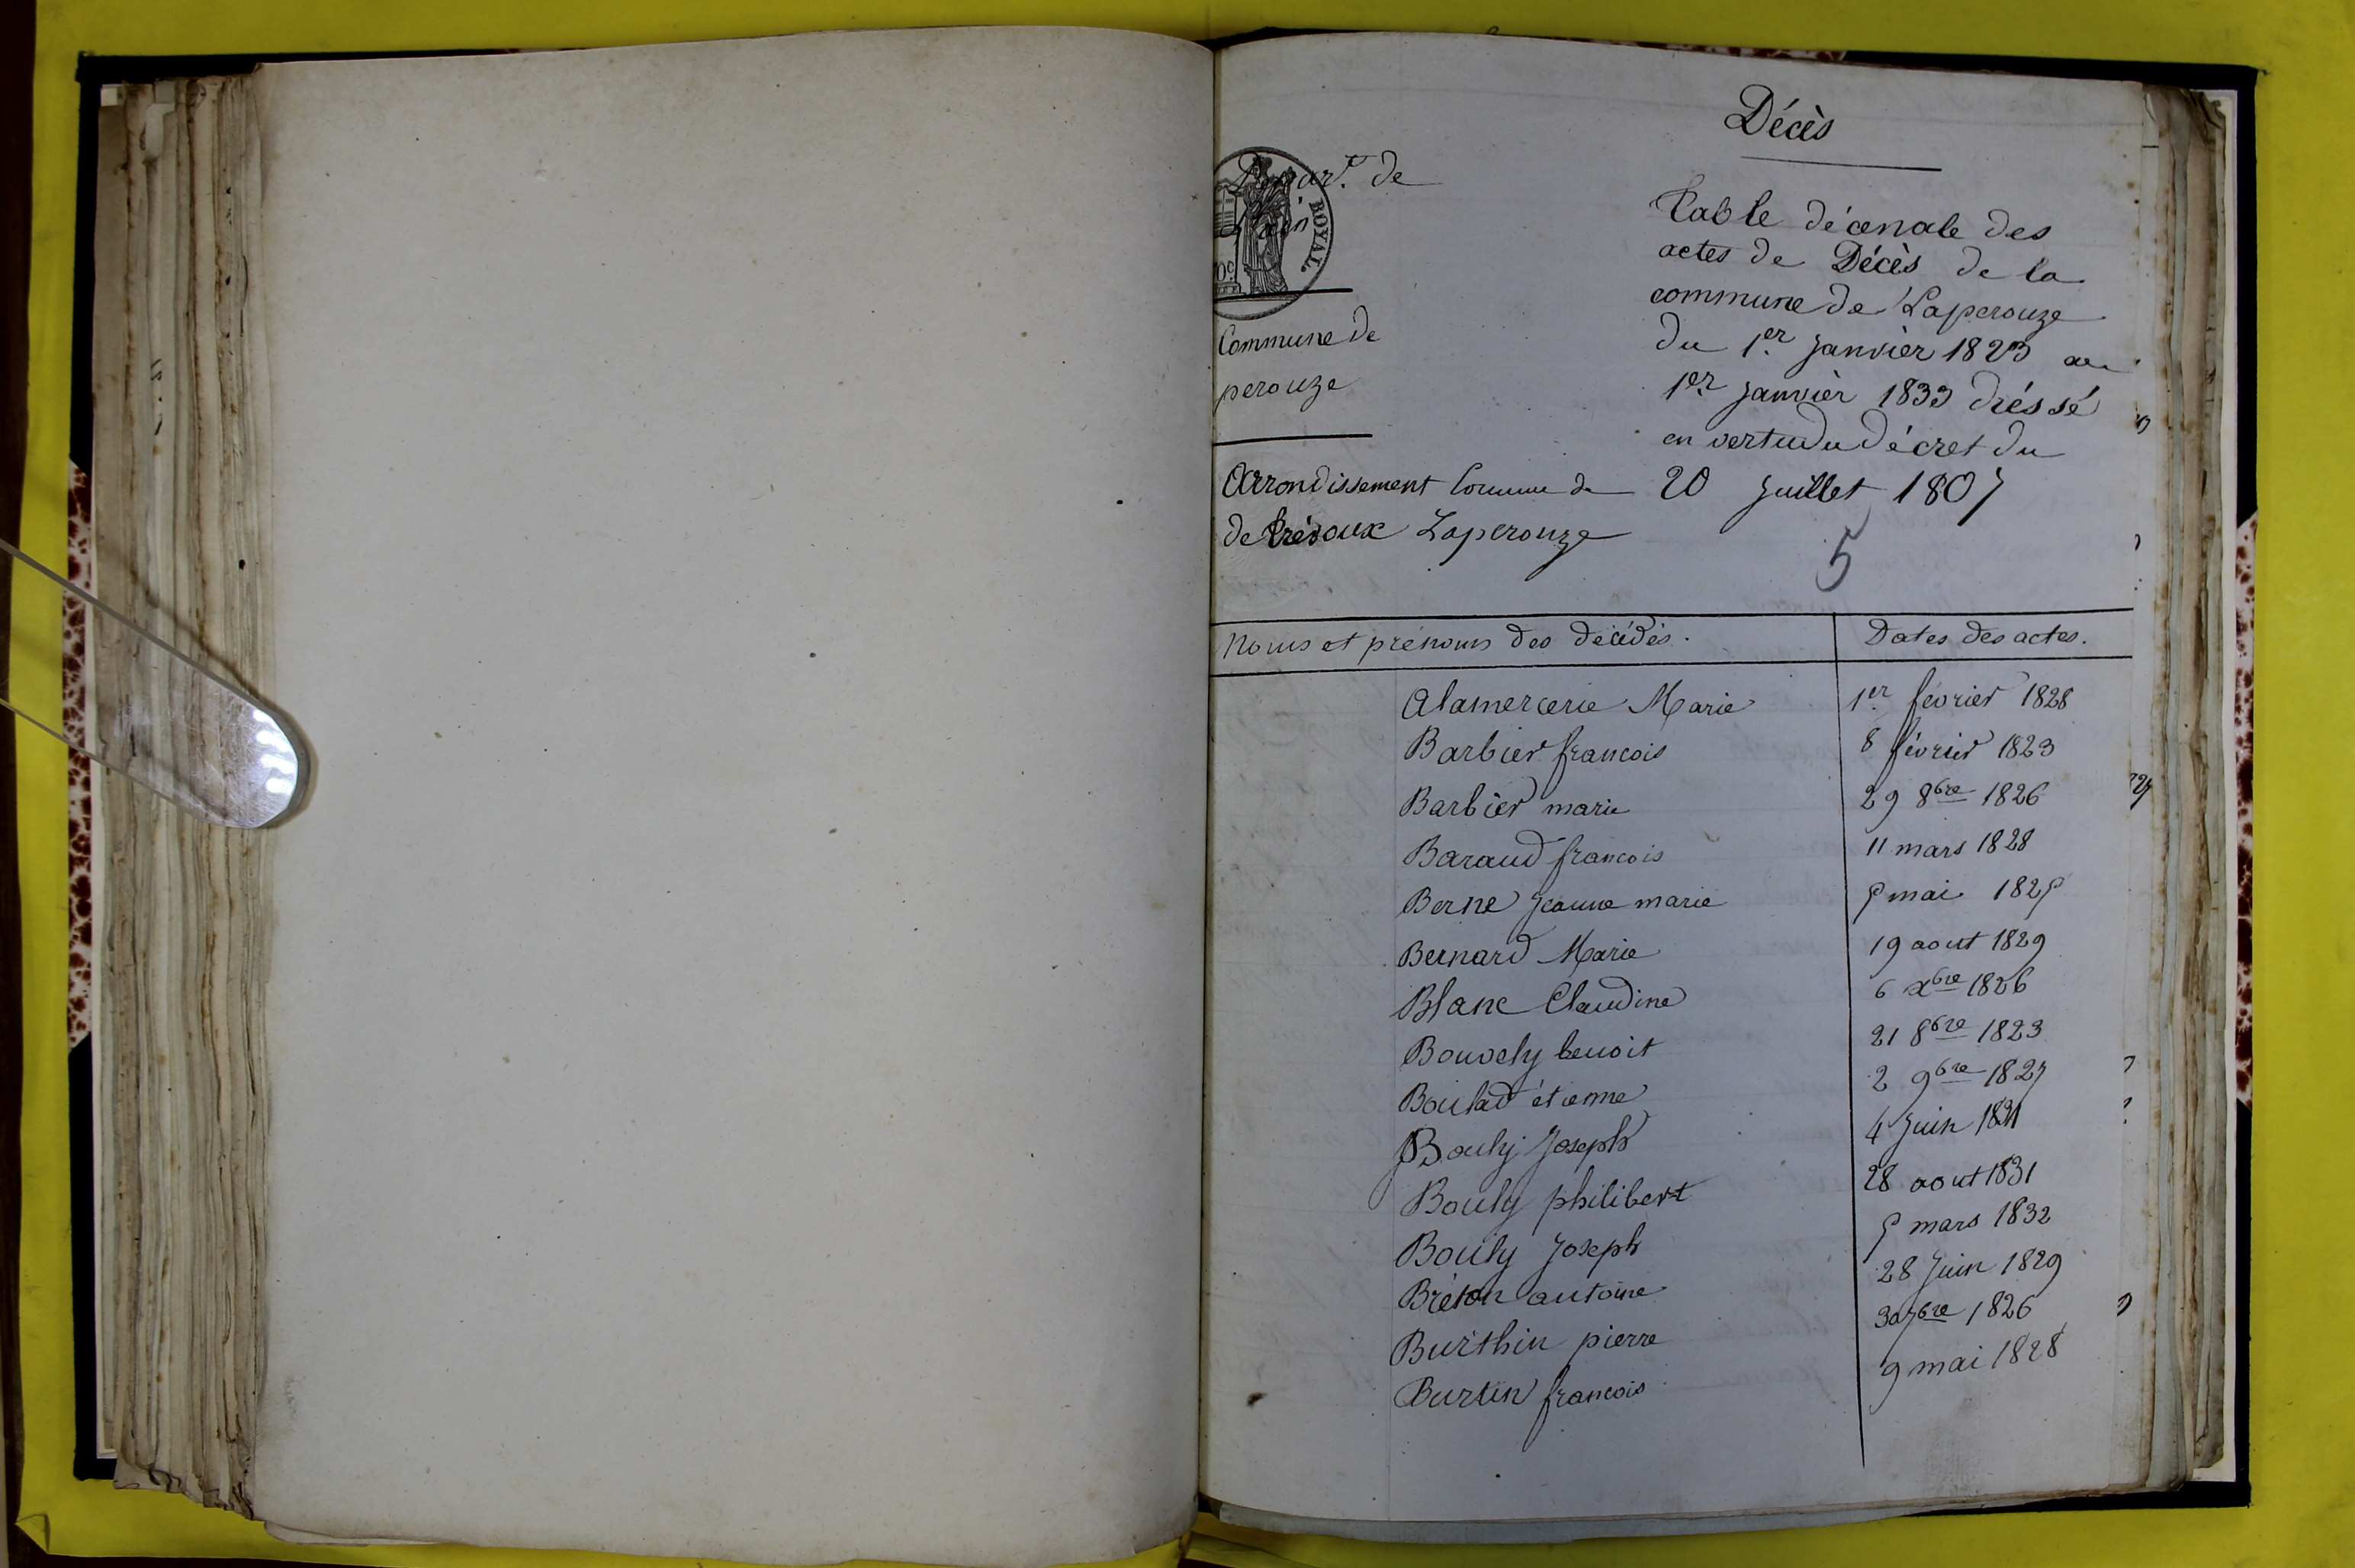 Décès
Départ. de
l'ain
ROYAL.
Table décenale des
actes de Décès de la
commune de Laperouze
du 1er janvier 1823 au
1er janvier 1833 dréssé
en vertu du décret du
20 juillet 1807
Commune de
perouze
Arrondissement Commune de
de trévoux Laperouze
5
Noms et prénoms des décédés. Dates des actes.
Alamercerie Marie 1er février 1828
Barbier francois 8 février 1823
Barbier marie 29 8bre 1826
Baraud francois 11 mars 1828
Berne Jeanne marie 5 mai 1825
Bernard Marie 19 aout 1829
Blanc Claudine 6 xbre 1826
Bouvely benoit 21 8bre 1823
Boulad étienne 2 9bre 1827
Bouly Joseph 4 Juin
Bouly philibert 28 aout 1831
Bouly Joseph 5 mars 1832
Bréton antoine 28 Juin 1829
Burthin pierre 30 7bre 1826
Burtin francois 9 mai 1828